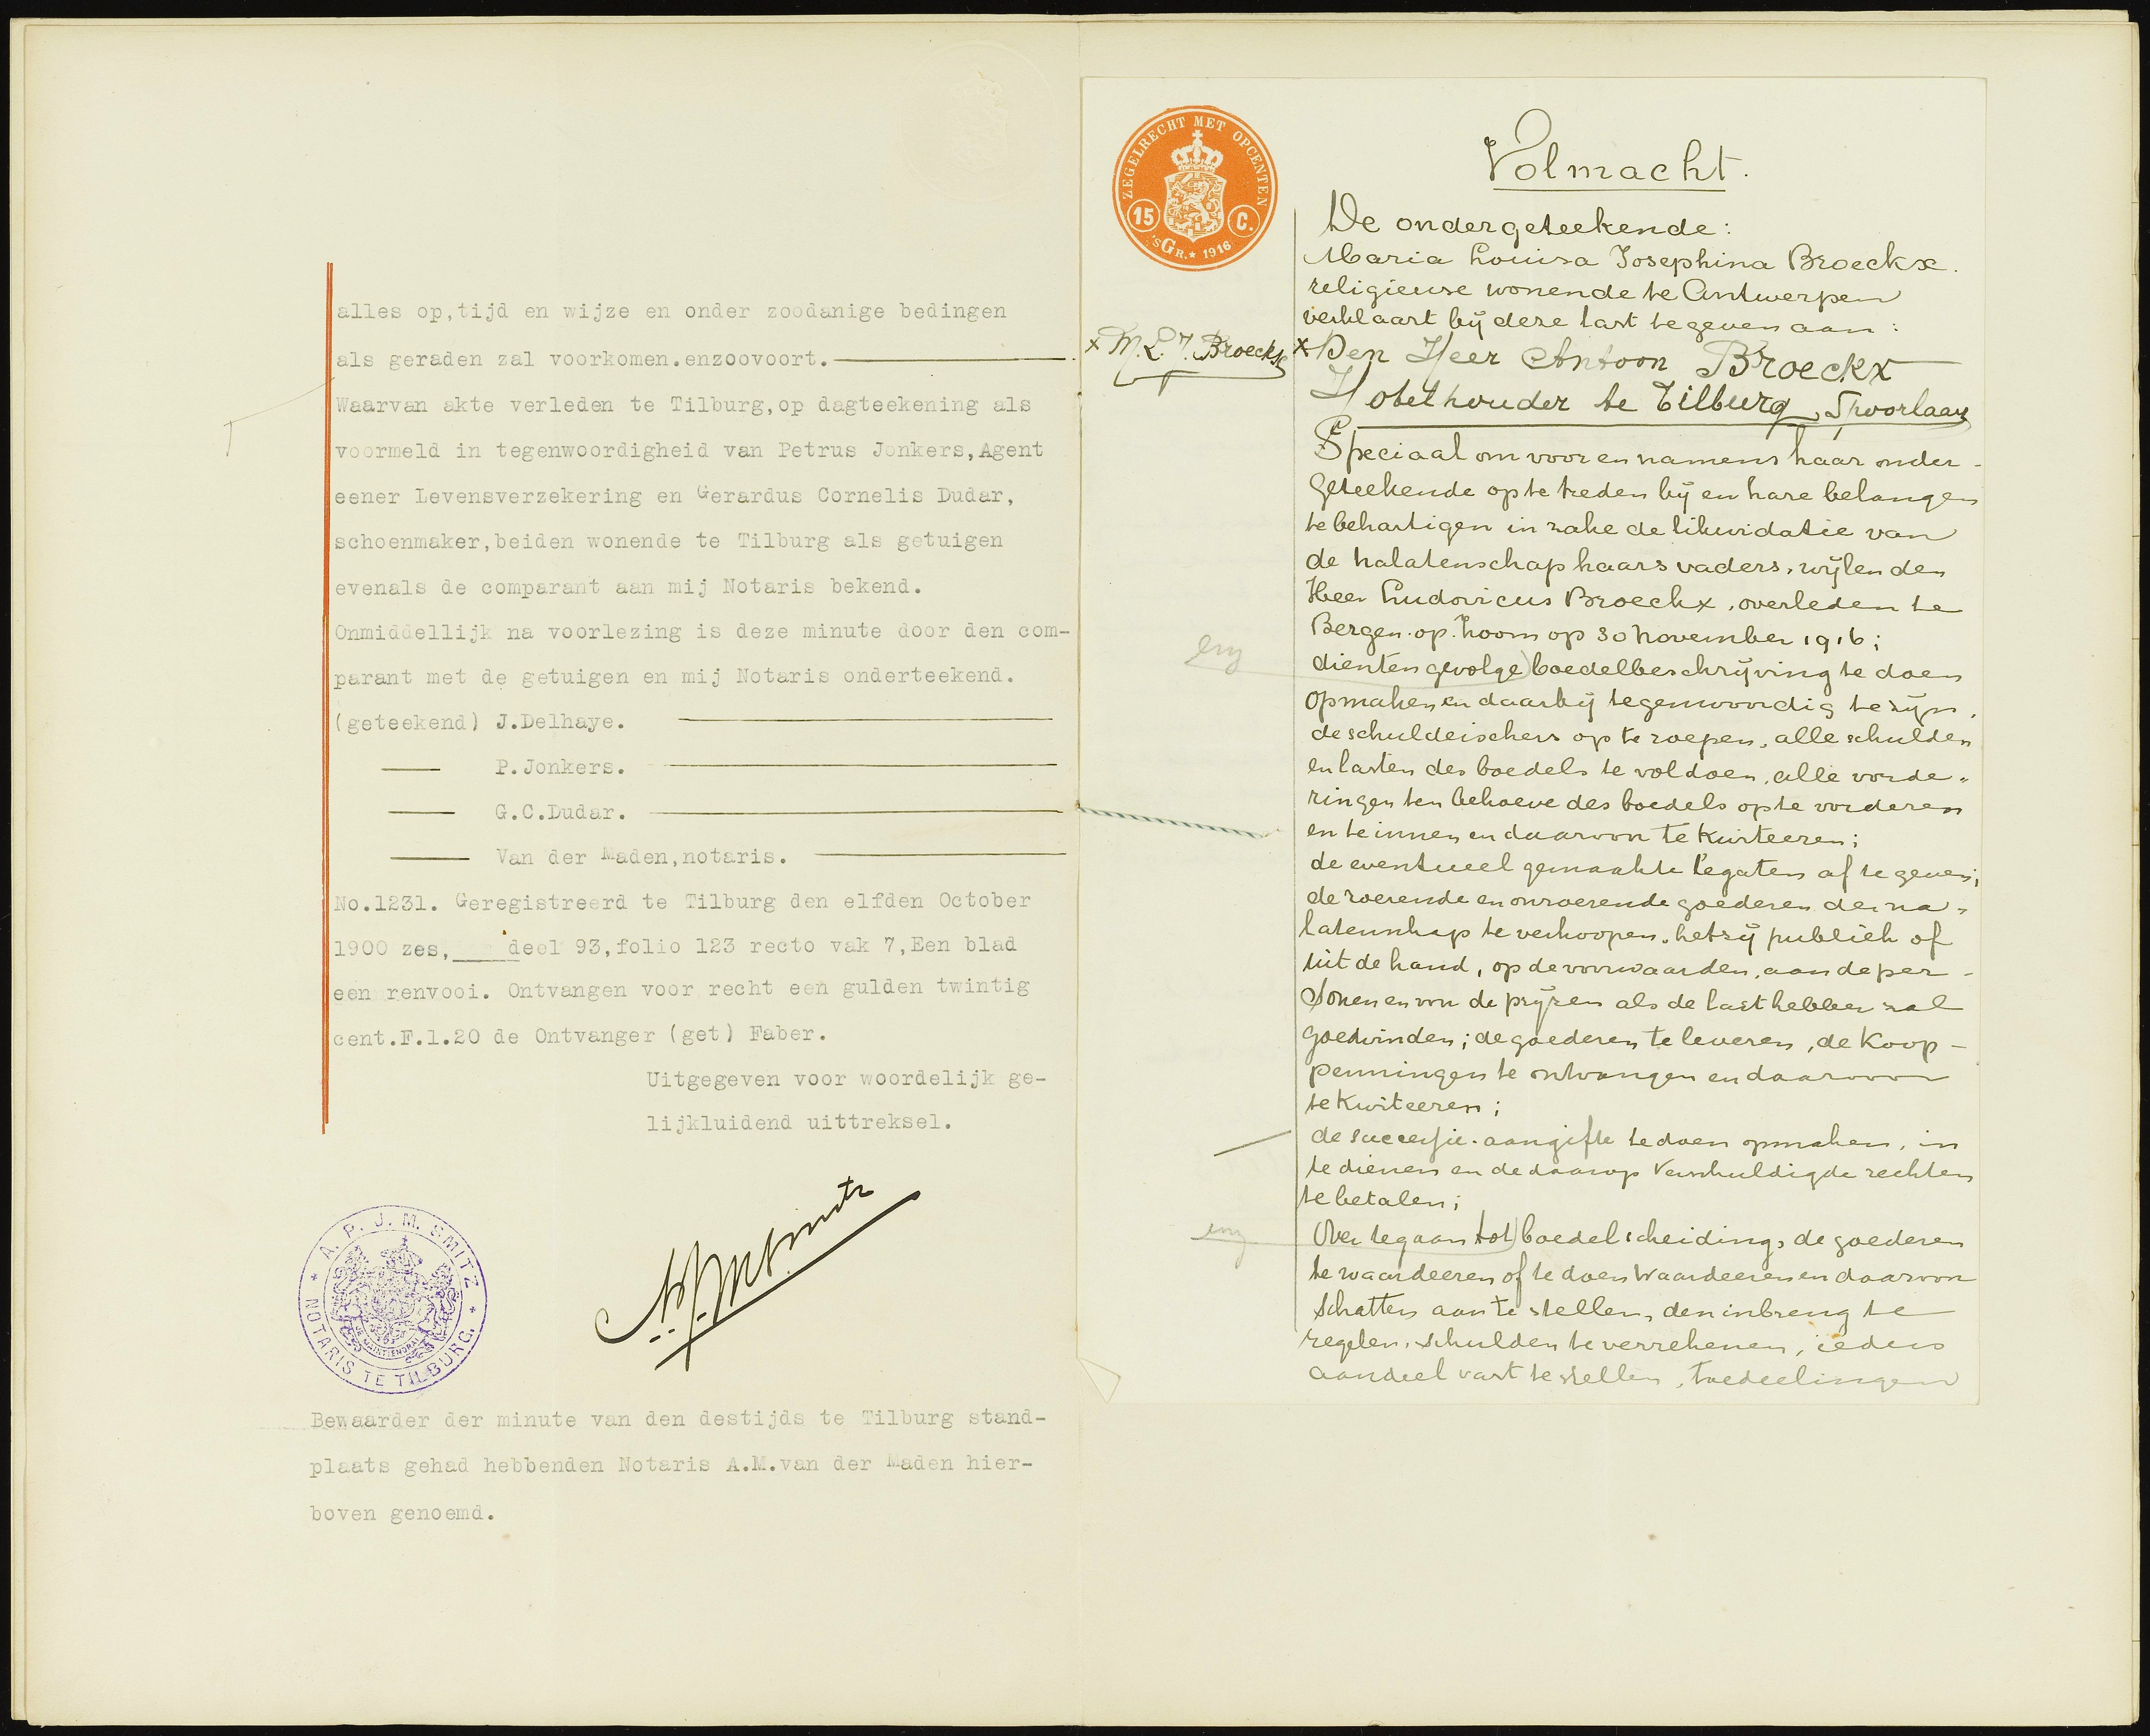 alles op,tijd en wijze en onder zoodanige bedingen
als geraden zal voorkomen.enzoovoort.
Waarvan akte verleden te Tilburg,op dagteekening als
voormeld in tegenwoordigheid van Petrus Jonkers,Agent
eener Levensverzekering en Gerardus Cornelis Dudar,
schoenmaker,beiden wonende te Tilburg als getuigen
evenals de comparant aan mij Notaris bekend.
Onmiddellijk na voorlezing is deze minute door den com-
parant met de getuigen en mij Notaris onderteekend.
(geteekend) J.Delhaye.
P.Jonkers.
G.C.Dudar.
Van der Maden,notaris.
No.1231. Geregistreerd te Tilburg den elfden October
1900 zes, deel 93,folio 123 recto vak 7,Een blad
een renvooi. Ontvangen voor recht een gulden twintig
cent.F.1.20 de Ontvanger (get) Faber.
Uitgegeven voor woordelijk ge-
lijkluidend uittreksel.
A. P. J. M. SMITZ
NOTARIS TE TILBURG.
Bewaarder der minute van den destijds te Tilburg stand-
plaats gehad hebbenden Notaris A.M.van der Maden hier-
boven genoemd.
ZEGELRECHT MET OPCENTEN
15 C.
'sGR.* 1916
Volmacht.
De ondergeteekende:
Maria Louisa Josephina Broeckx.
religieuse wonende te Antwerpen
verklaart bij deze last te geven aan:
x M. L. J. Broeckx
x Den Heer Antoon Broeckx
Hotelhouder te Tilburg, Spoorlaan
Speciaal om voor en namens haar onder-
geteekende op te treden bij en hare belangen
te behartigen in zake de likwidatie van
de nalatenschap haars vaders, wijlen den
Heer Ludovicus Broeckx, overleden te
Bergen-op-Zoom op 30 November 1916;
dientengevolge boedelbeschrijving te doen
opmaken en daarbij tegenwoordig te zijn,
de schuldeischers op te roepen, alle schulden
en lasten des boedels te voldoen, alle vorde-
ringen ten behoeve des boedels op te vorderen
en te innen en daarvoor te kwiteeren;
de eventueel gemaakte legaten af te geven;
de roerende en onroerende goederen der na-
latenschap te verkoopen, hetzij publiek of
uit de hand, op de voorwaarden, aan de per-
sonen en voor de prijzen als de lasthebber zal
goedvinden; de goederen te leveren, de koop-
penningen te ontvangen en daarvoor
te kwiteeren;
de successie-aangifte te doen opmaken, in
te dienen en de daarop verschuldigde rechten
te betalen;
Over te gaan tot boedelscheiding, de goederen
te waardeeren of te doen waardeeren en daarvoor
schatters aan te stellen, den inbreng te
regelen, schulden te verrekenen, ieders
aandeel vast te stellen, toedeelingen